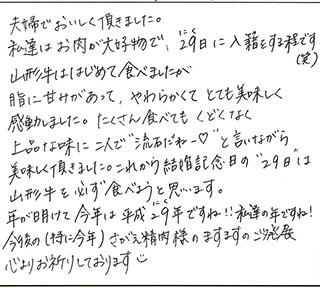 夫婦でおいしく頂きました。
私達はお肉が大好物で、29日に入籍をする程です
にく
(笑)
山形牛ははじめて食べましたが
脂に甘みがあって、やわらかくてとても美味しく
感動しました。たくさん食べてもくどくなく
上品な味に二人で"流石だねー♡"と言いながら
美味しく頂きました。これから結婚記念日の"29日"は
山形牛を必ず食べようと思います。
年が明けて今年は平成29年ですね!!私達の年ですね!
にく
今後の(特に今年)さがえ精肉様のますますのご発展
心よりお祈りしております